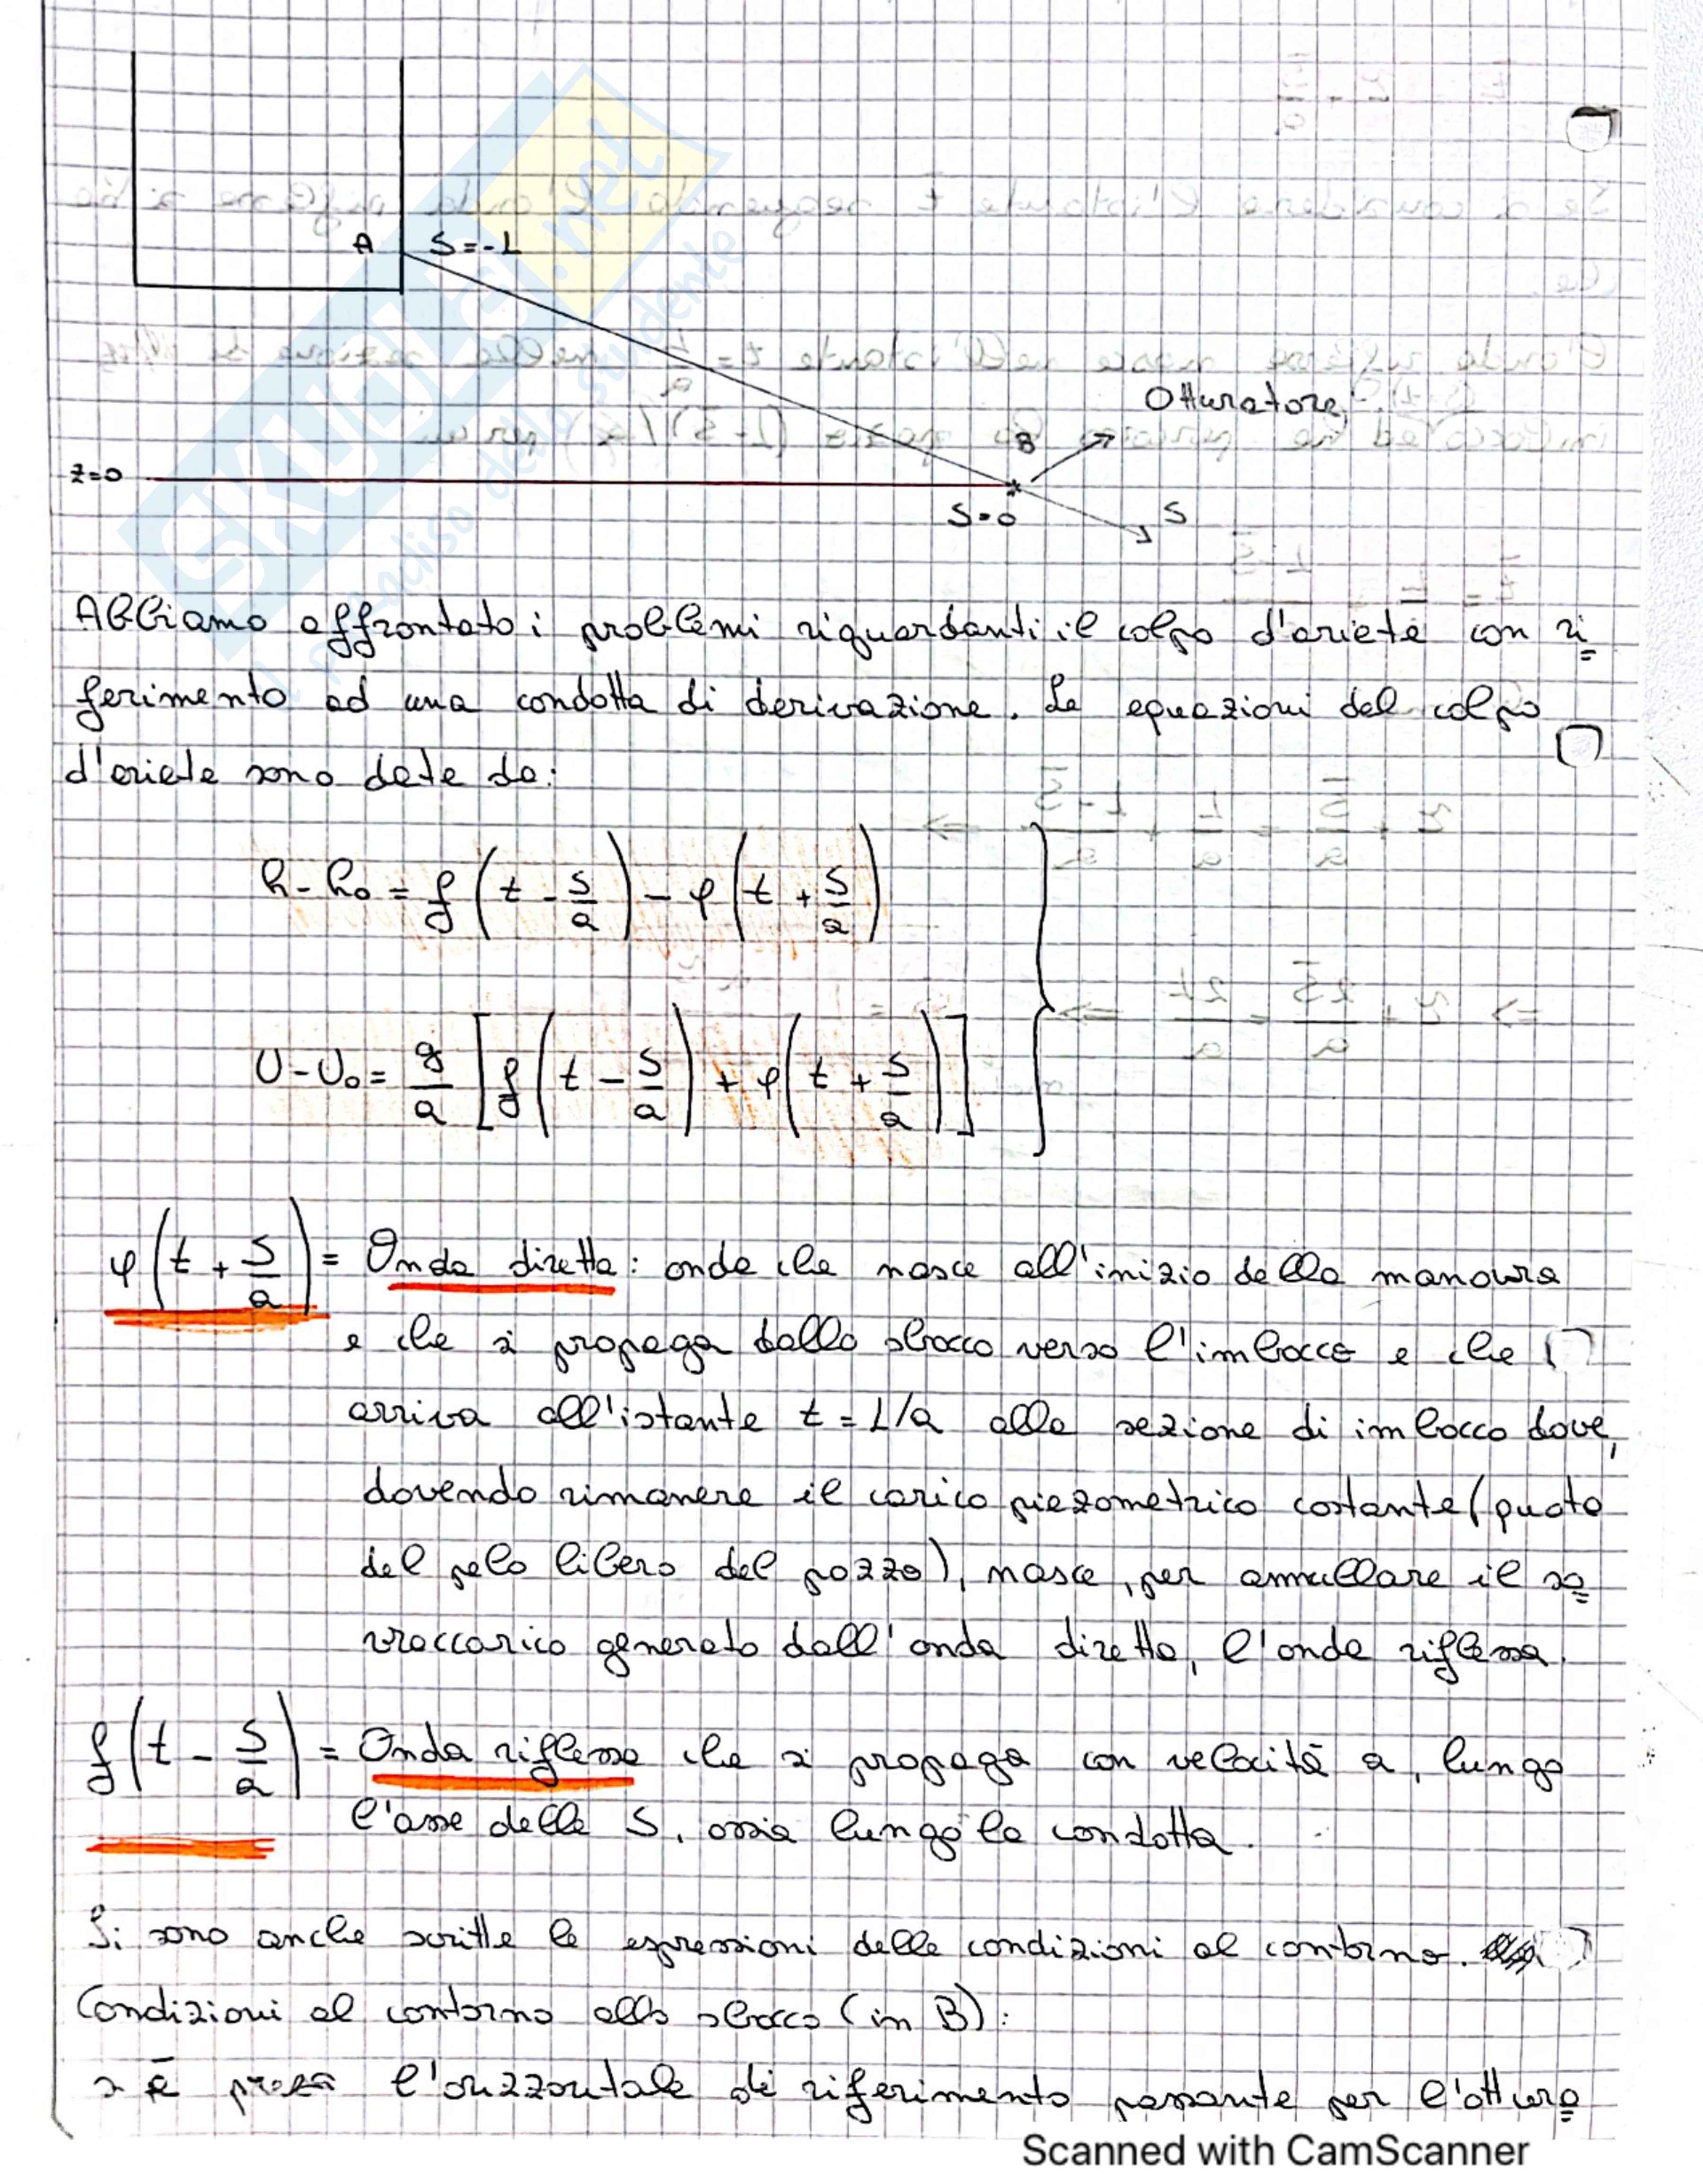 A S=-L
Otturatore
B
z=0
S=0 S
Abbiamo affrontato i problemi riguardanti il colpo d'ariete con ri
ferimento ad una condotta di derivazione. Le equazioni del colpo
d'ariete sono date da:
h-h₀ = f(t - s/a) - φ(t + s/a)
U-U₀ = g/a [f(t - s/a) + φ(t + s/a)]
φ(t + s/a) = Onda diretta: onda che nasce all'inizio della manovra
e che si propaga dallo sbocco verso l'imbocco e che
arriva all'istante t = L/a alla sezione di imbocco dove,
dovendo rimanere il carico piezometrico costante (quota
del pelo libero del pozzo), nasce, per annullare il so
vraccarico generato dall'onda diretta, l'onda riflessa.
f(t - s/a) = Onda riflessa che si propaga con velocità a, lungo
l'asse delle S, ossia lungo la condotta.
Si sono anche scritte le espressioni delle condizioni al contorno.
Condizioni al contorno allo sbocco (in B):
si è presa l'orizzontale di riferimento passante per l'ottura
Scanned with CamScanner
SKUOLA.net
il paradiso dello studente